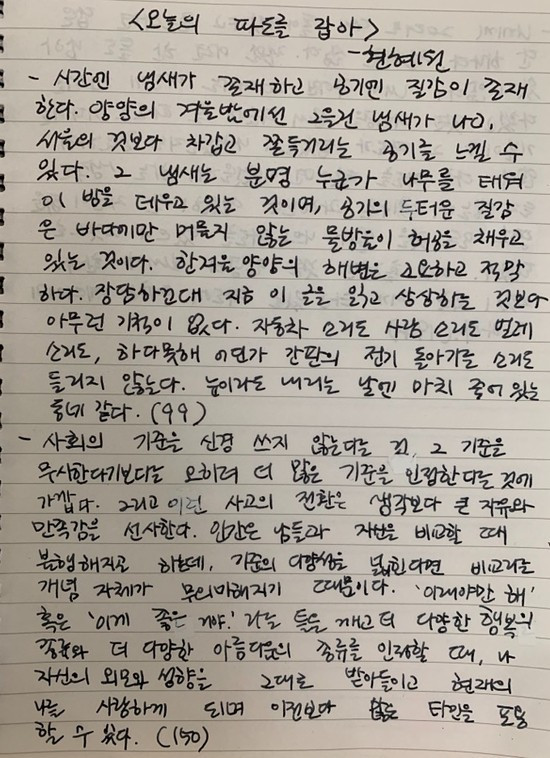 <오늘의 파도를 잡아>
- 현혜원
- 시간엔 냄새가 존재하고 공기엔 질감이 존재
한다. 양양의 겨울밤에선 그을린 냄새가 나고,
서울의 것보다 차갑고 쫄득거리는 공기를 느낄 수
있다. 그 냄새는 분명 누군가 나무를 태워
이 밤을 데우고 있는 것이며, 공기의 두터운 질감
은 바다에만 머물지 않는 물방울이 허공을 채우고
있는 것이다. 한겨울 양양의 해변은 고요하고 적막
하다. 장담하건대 지금 이 글을 읽고 상상하는 것보다
아무런 기척이 없다. 자동차 소리도 사람 소리도 벌레
소리도, 하다못해 어딘가 간판의 전기 돌아가는 소리도
들리지 않는다. 눈이라도 내리는 날엔 마치 죽어 있는
동네 같다. (99)
- 사회의 기준을 신경 쓰지 않는다는 건, 그 기준을
무시한다기보다는 오히려 더 많은 기준을 인정한다는 것에
가깝다. 그리고 이런 사고의 전환은 생각보다 큰 자유와
만족감을 선사한다. 인간은 남들과 자신을 비교할 때
불행해지곤 하는데, 기준의 다양성을 넓힌다면 비교라는
개념 자체가 무의미해지기 때문이다. '이래야만 해'
혹은 '이게 좋은 거야.' 라는 틀을 깨고 더 다양한 행복의
종류와 더 다양한 아름다움의 종류를 인정할 때, 나
자신의 외모와 성향을 그대로 받아들이고 현재의
나를 사랑하게 되며 이전보다 타인을 포용
할 수 있다. (150)